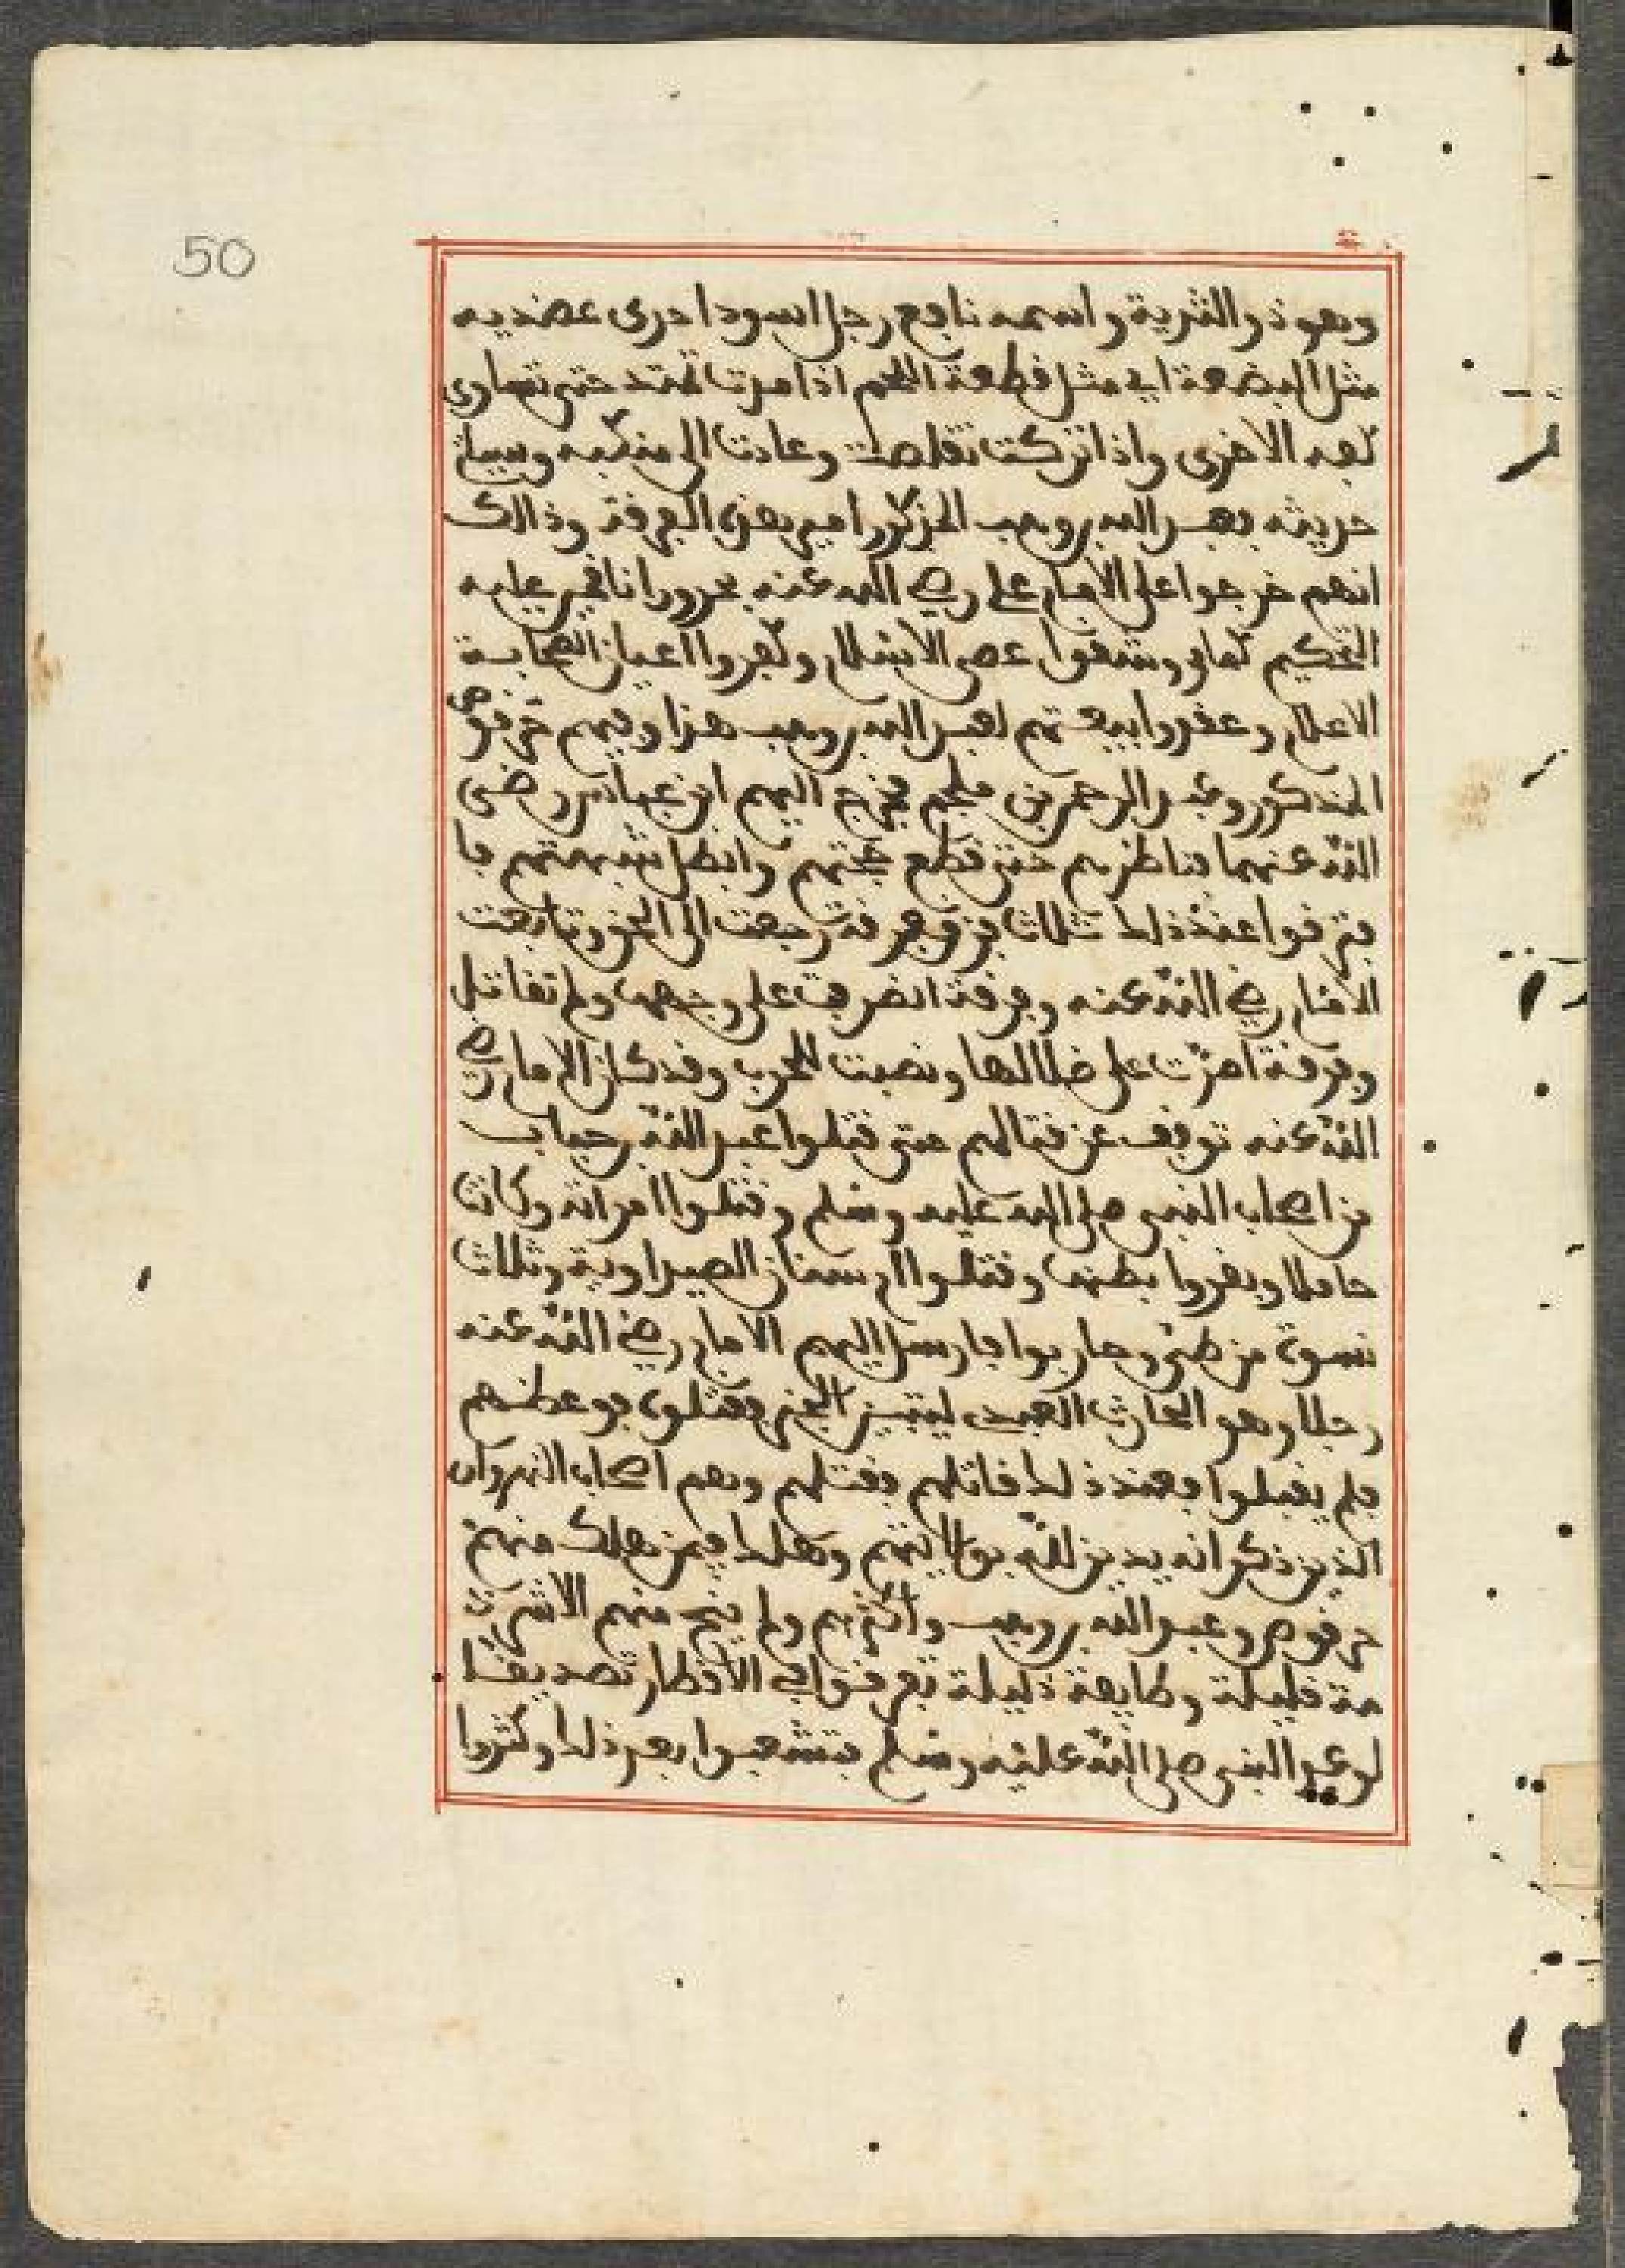 50
وهو ذو الثدية واسمه نافع رجل اسود احدى عضديه
مثل البضعة اي مثل قطعة اللحم اذا مدت تمتد حتى تساوي
كفه الاخرى واذا تركت تقلصت وعادت الى منكبه وسيأتي
حديثه وعبد الله بن وهب المذكور امير هذه الفرقة وذالك
انهم خرجوا على الامام علي رضي الله عنه بحروراء ناقمين عليه
التحكيم كما مر وشقوا عصى الاسلام وكفروا اعيان الصحابة
الاعلام وعقدوا بيعتهم لعبد الله بن وهب هذا وفيهم حرقوص
المذكور وعبد الرحمن بن ملجم فخرج اليهم ابن عباس رضي
الله عنهما فناظرهم حتى قطع حجتهم وابطل شبهتهم فا
فترقوا عند ذلك ثلاث فرق فرقة رجعت الى الحق وتابعت
الامام رضي الله عنه وفرقة انصرفت على وجهها ولم تقاتل
وفرقة اصرت على ضلالها ونصبت للحرب وقد كان الامام رضي
الله عنه توقف عن قتالهم حتى قتلوا عبد الله بن خباب
من اصحاب النبي صلى الله عليه وسلم وقتلوا امراته وكانت
حاملا وبقروا بطنها وقتلوا ام سنان الصيداوية وثلاث
نسوة من طيئ وحاربوا فارسل اليهم الامام رضي الله عنه
رجلا وهو الحارث العبدي ليتبين الخبر فقتلوه فوعظهم
فلم يقبلوا فعند ذلك قاتلهم فقتلهم وهم اصحاب النهروان
الذين ذكر انه يدين لله بولايتهم وهلك فيمن هلك منهم
حرقوص وعبد الله بن وهب واكثرهم ولم ينج منهم الا شرذ
مة قليلة وطايفة ذليلة تفرقوا في الاقطار تصديقا
لوعد النبي صلى الله عليه وسلم فتشعبوا بعد ذلك وكثروا